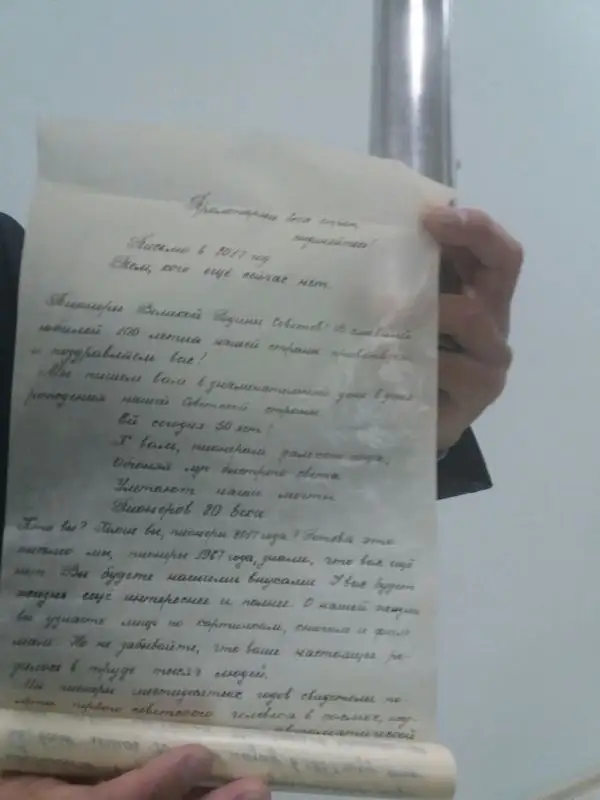 Пролетарии всех стран,
соединяйтесь!
Письмо в 2017 год
Тем, кого ещё сейчас нет.
Пионеры Великой Родины Советов! В славный
юбилей 100 летия нашей страны приветствуем
и поздравляем вас!
Мы пишем вам в знаменательный день в день
рождения нашей Советской страны.
Ей сегодня 50 лет!
К вам, пионерам далекого года,
Обгоняя луч быстрого света
Улетают наши мечты
Пионеров 20 века
Кто вы? Какие вы, пионеры 2017 года? Готовя это
письмо мы, пионеры 1967 года, знаем, что вас ещё
нет. Вы будете нашими внуками. У вас будет
жизнь ещё интереснее и полнее. О нашей жизни
вы узнаете лишь по картинкам, книгам и филь
мам. Но не забывайте, что ваше настоящее ро-
дилось в труде тысяч людей.
Мы пионеры шестидесятых годов свидетели по-
лёта первого советского человека в космос,
автоматической